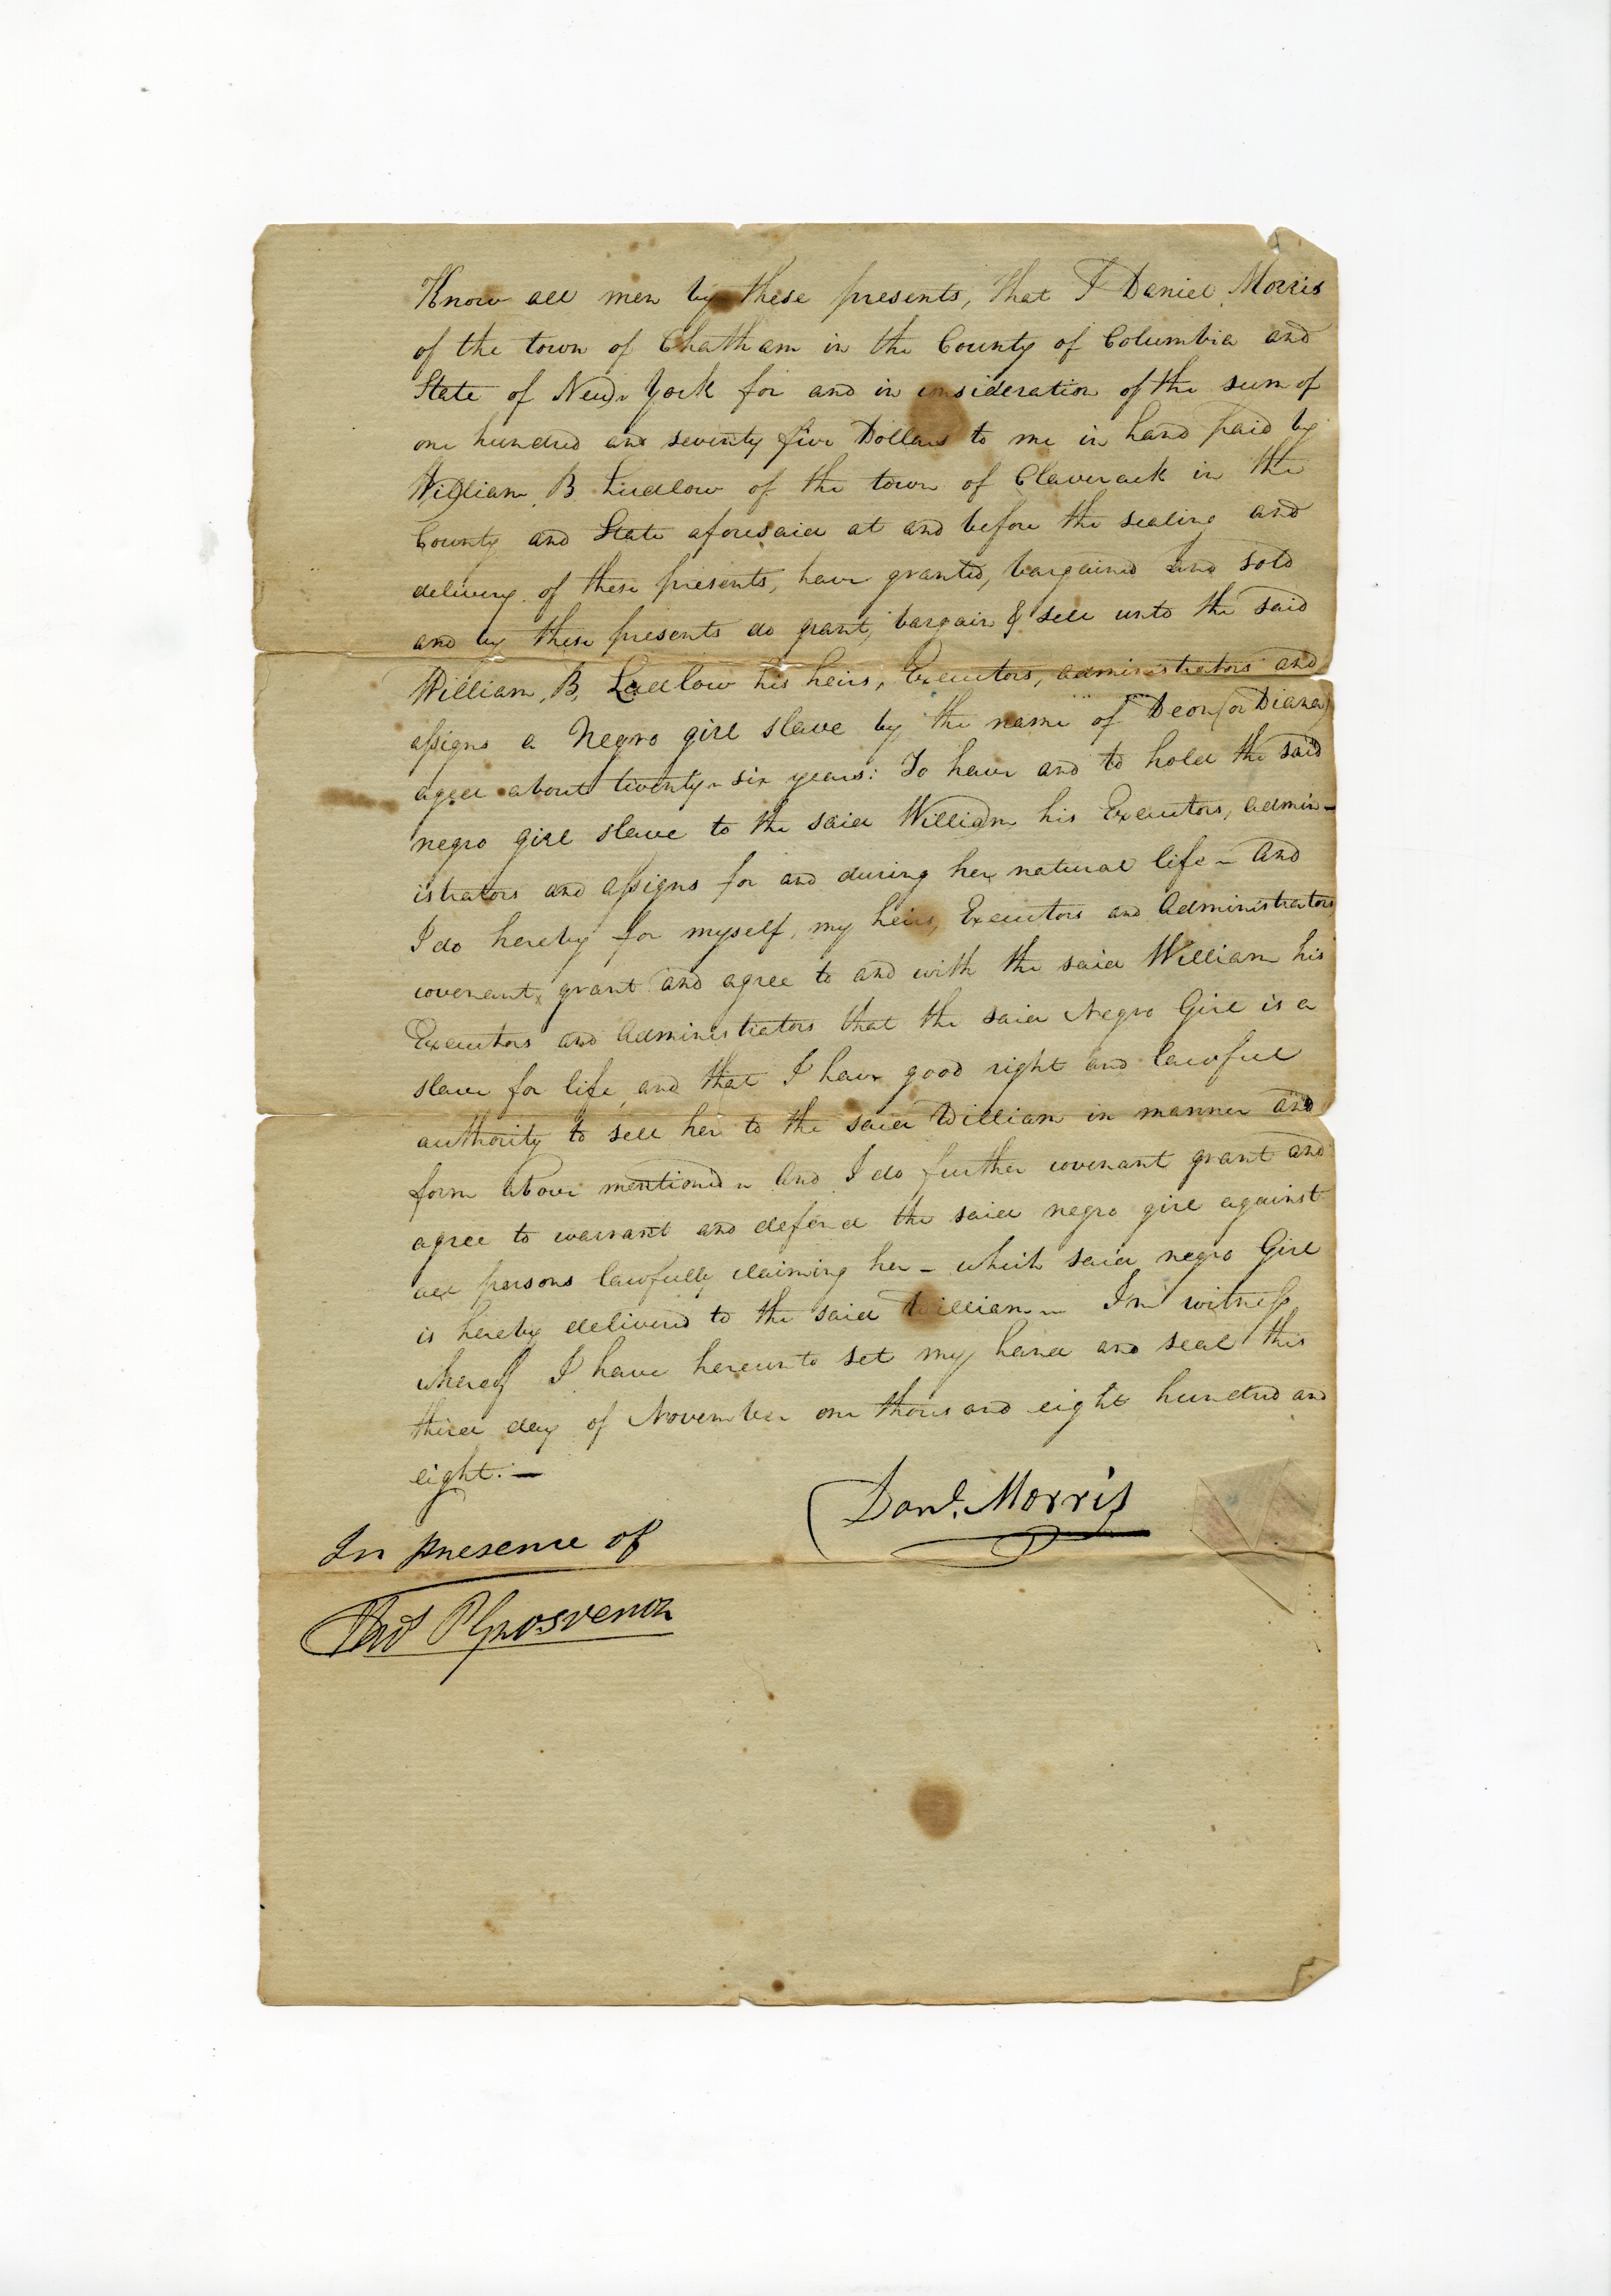 Know all men by these presents, that I Daniel Morris
of the town of Chatham in the County of Columbia and
State of New York for and in consideration of the sum of
one hundred and seventy five Dollars to me in hand paid by
William B Ludlow of the town of Claverack in the
County and State aforesaid at and before the sealing and
delivery of these presents, have granted, bargained and sold
and by these presents do grant, bargain & sell unto the said
William B. Ludlow his heirs, Executors, administrators and
assigns a Negro girl slave by the name of Deon (or Diana)
aged about twenty-six years: To have and to hold the said
negro girl slave to the said William his Executors, admin-
istrators and assigns for and during her natural life - And
I do hereby for myself, my heirs, Executors and Administrators
covenant, grant and agree to and with the said William his
Executors and Administrators that the said Negro Girl is a
slave for life, and that I have good right and lawful
authority to sell her to the said William in manner and
form above mentioned - And I do further covenant grant and
agree to warrant and defend the said negro girl against
all persons lawfully claiming her - which said negro Girl
is hereby delivered to the said William - In witness
whereof I have hereunto set my hand and seal this
third day of November one thousand eight hundred and
eight. -
Danl. Morris
In presence of
Thos P Grosvenor